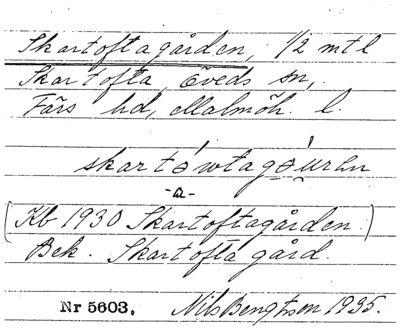 Skartoftagården, 1/2 mtl
Skartofta, Öveds sn,
Färs hd, Malmöh. l.
-a-
(Kb 1930 Skartoftagården.)
Bek. Skartofta gård.
Nr 5603. Nils Bengtsson 1935.